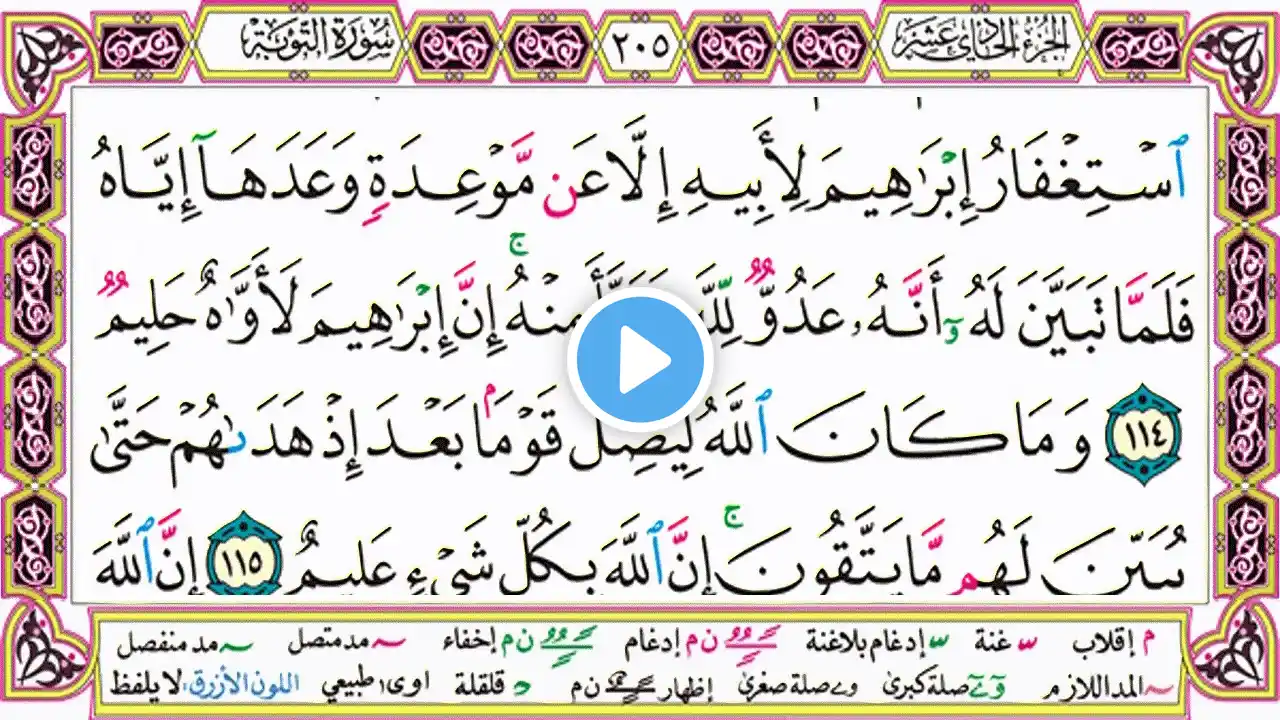 الجزء الحادي عشر ٢٠٥ سورة التوبة
ٱسْتِغْفَارُ إِبْرَٰهِيمَ لِأَبِيهِ إِلَّا عَن مَّوْعِدَةٍ وَعَدَهَآ إِيَّاهُ
فَلَمَّا تَبَيَّنَ لَهُۥٓ أَنَّهُۥ عَدُوٌّ لِّلَّهِ مِنْهُ ۚ إِنَّ إِبْرَٰهِيمَ لَأَوَّٰهٌ حَلِيمٌ
١١٤ وَمَا كَانَ ٱللَّهُ لِيُضِلَّ قَوْمًۢا بَعْدَ إِذْ هَدَىٰهُمْ حَتَّىٰ
يُبَيِّنَ لَهُم مَّا يَتَّقُونَ ۚ إِنَّ ٱللَّهَ بِكُلِّ شَىْءٍ عَلِيمٌ ١١٥ إِنَّ ٱللَّهَ
م إقلاب غنة إدغام بلاغنة ن م إدغام ن م إخفاء مد متصل مد منفصل
المد اللازم صلة كبرى صلة صغرى إظهار ن م قلقلة اوى طبيعي اللون الأزرق لا يلفظ